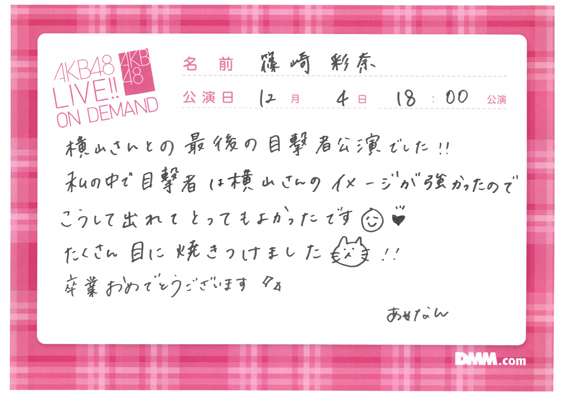 AKB48
LIVE!!
ON DEMAND
AKB
48
名前 篠崎 彩奈
公演日 12月 4日 18:00 公演
横山さんとの最後の目撃者公演でした!!
私の中で目撃者は横山さんのイメージが強かったので
こうして出れてとってもよかったです
たくさん目に焼きつけました!!
卒業おめでとうございます
あやなん
DMM.com